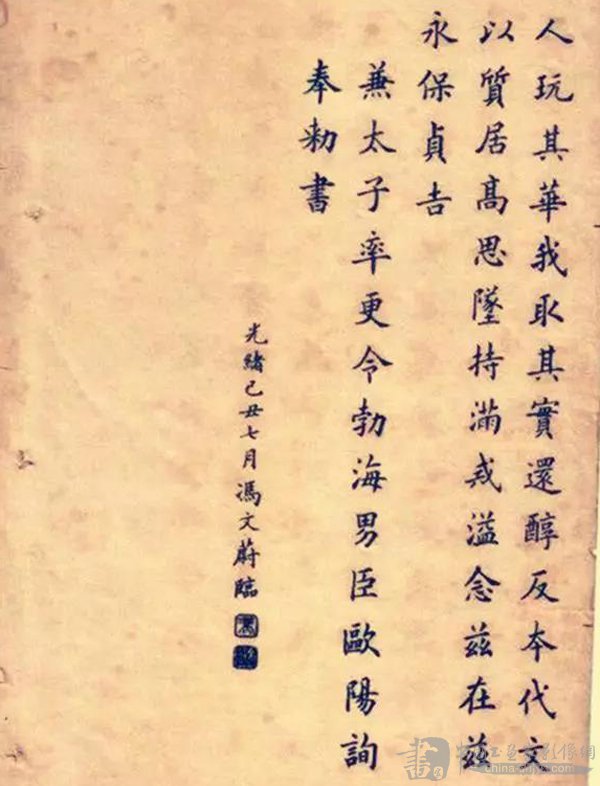 人玩其華我取其實還醇反本代文
以質居高思墜持滿戒溢念兹在兹
永保貞吉
兼太子率更令勃海男臣歐陽詢
奉勑書
光緒己丑七月馮文蔚臨